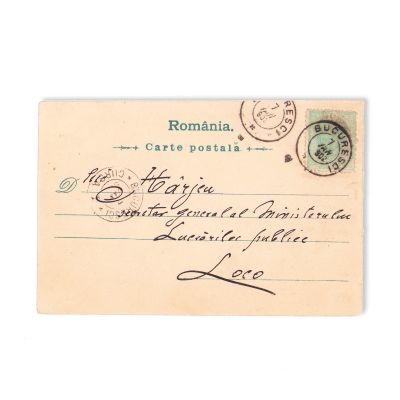 România.
Carte postală
BUCURESCI
7
BUCURESCI
7
D
Hârjeu
secretar general al Ministerului
Lucrărilor publice
Loco